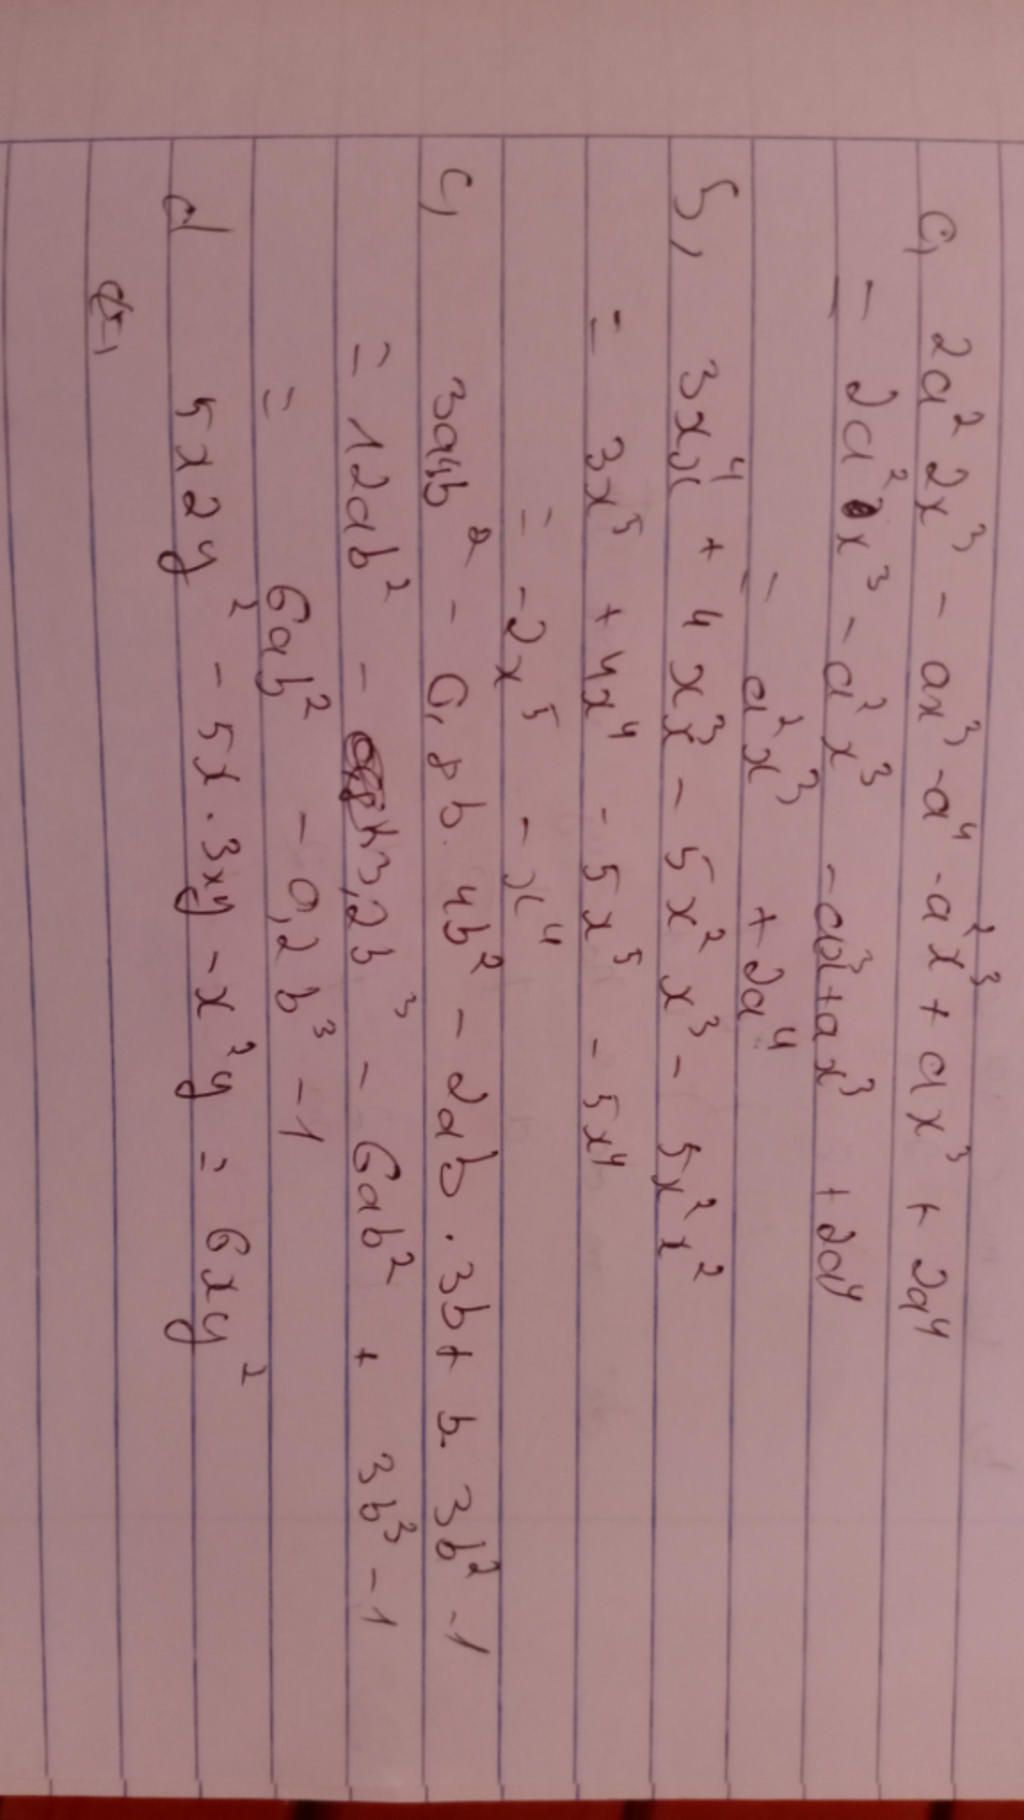 a, 2a² 2x³ - ax³ - a⁴ - a²x³ + ax³ + 2a⁴
= 2a²x³ - a²x³ - ax³ + ax³ + 2a⁴
= a²x³ + 2a⁴
b, 3x⁴x + 4x³x - 5x²x³ - 5x²x²
= 3x⁵ + 4x⁴ - 5x⁵ - 5x⁴
= -2x⁵ - x⁴
c, 3a4b² - 0,8b. 4b² - 2ab . 3b + b. 3b² - 1
= 12ab² - 3,2b³ - 6ab² + 3b³ - 1
= 6ab² - 0,2b³ - 1
d 5x2y² - 5x . 3xy - x²y = 6xy²